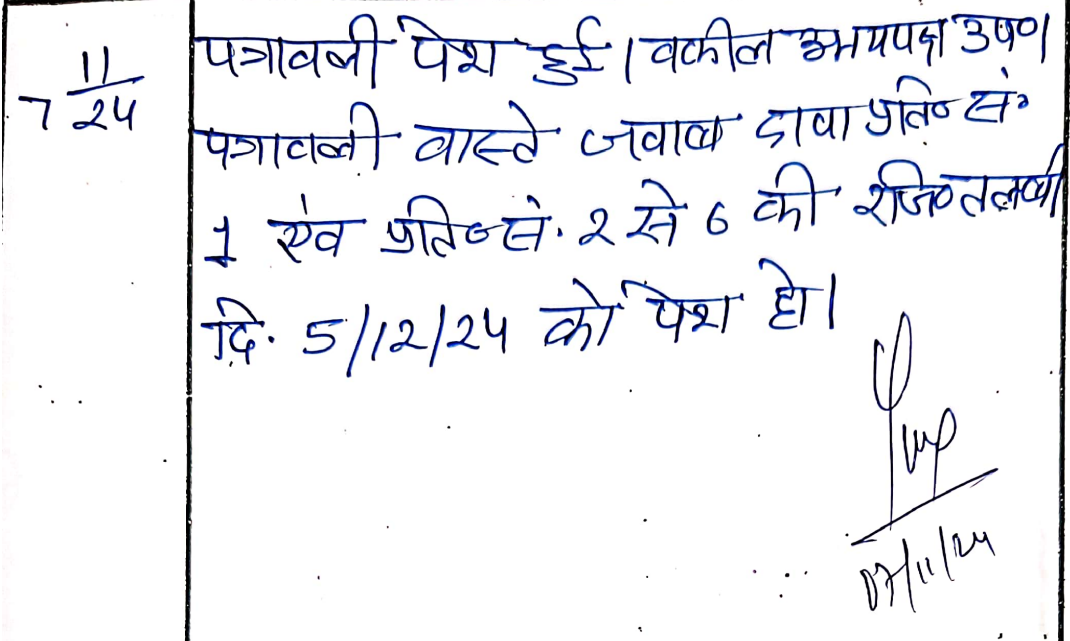 7 11/24
पत्रावली पेश हुई। वकील उभयपक्ष उप०।
पत्रावली वास्ते जवाब दावा प्रति० सं०
1 एंव प्रति० सं. 2 से 6 की रजि० तलबी
दि. 5/12/24 को पेश हो।
07/11/24